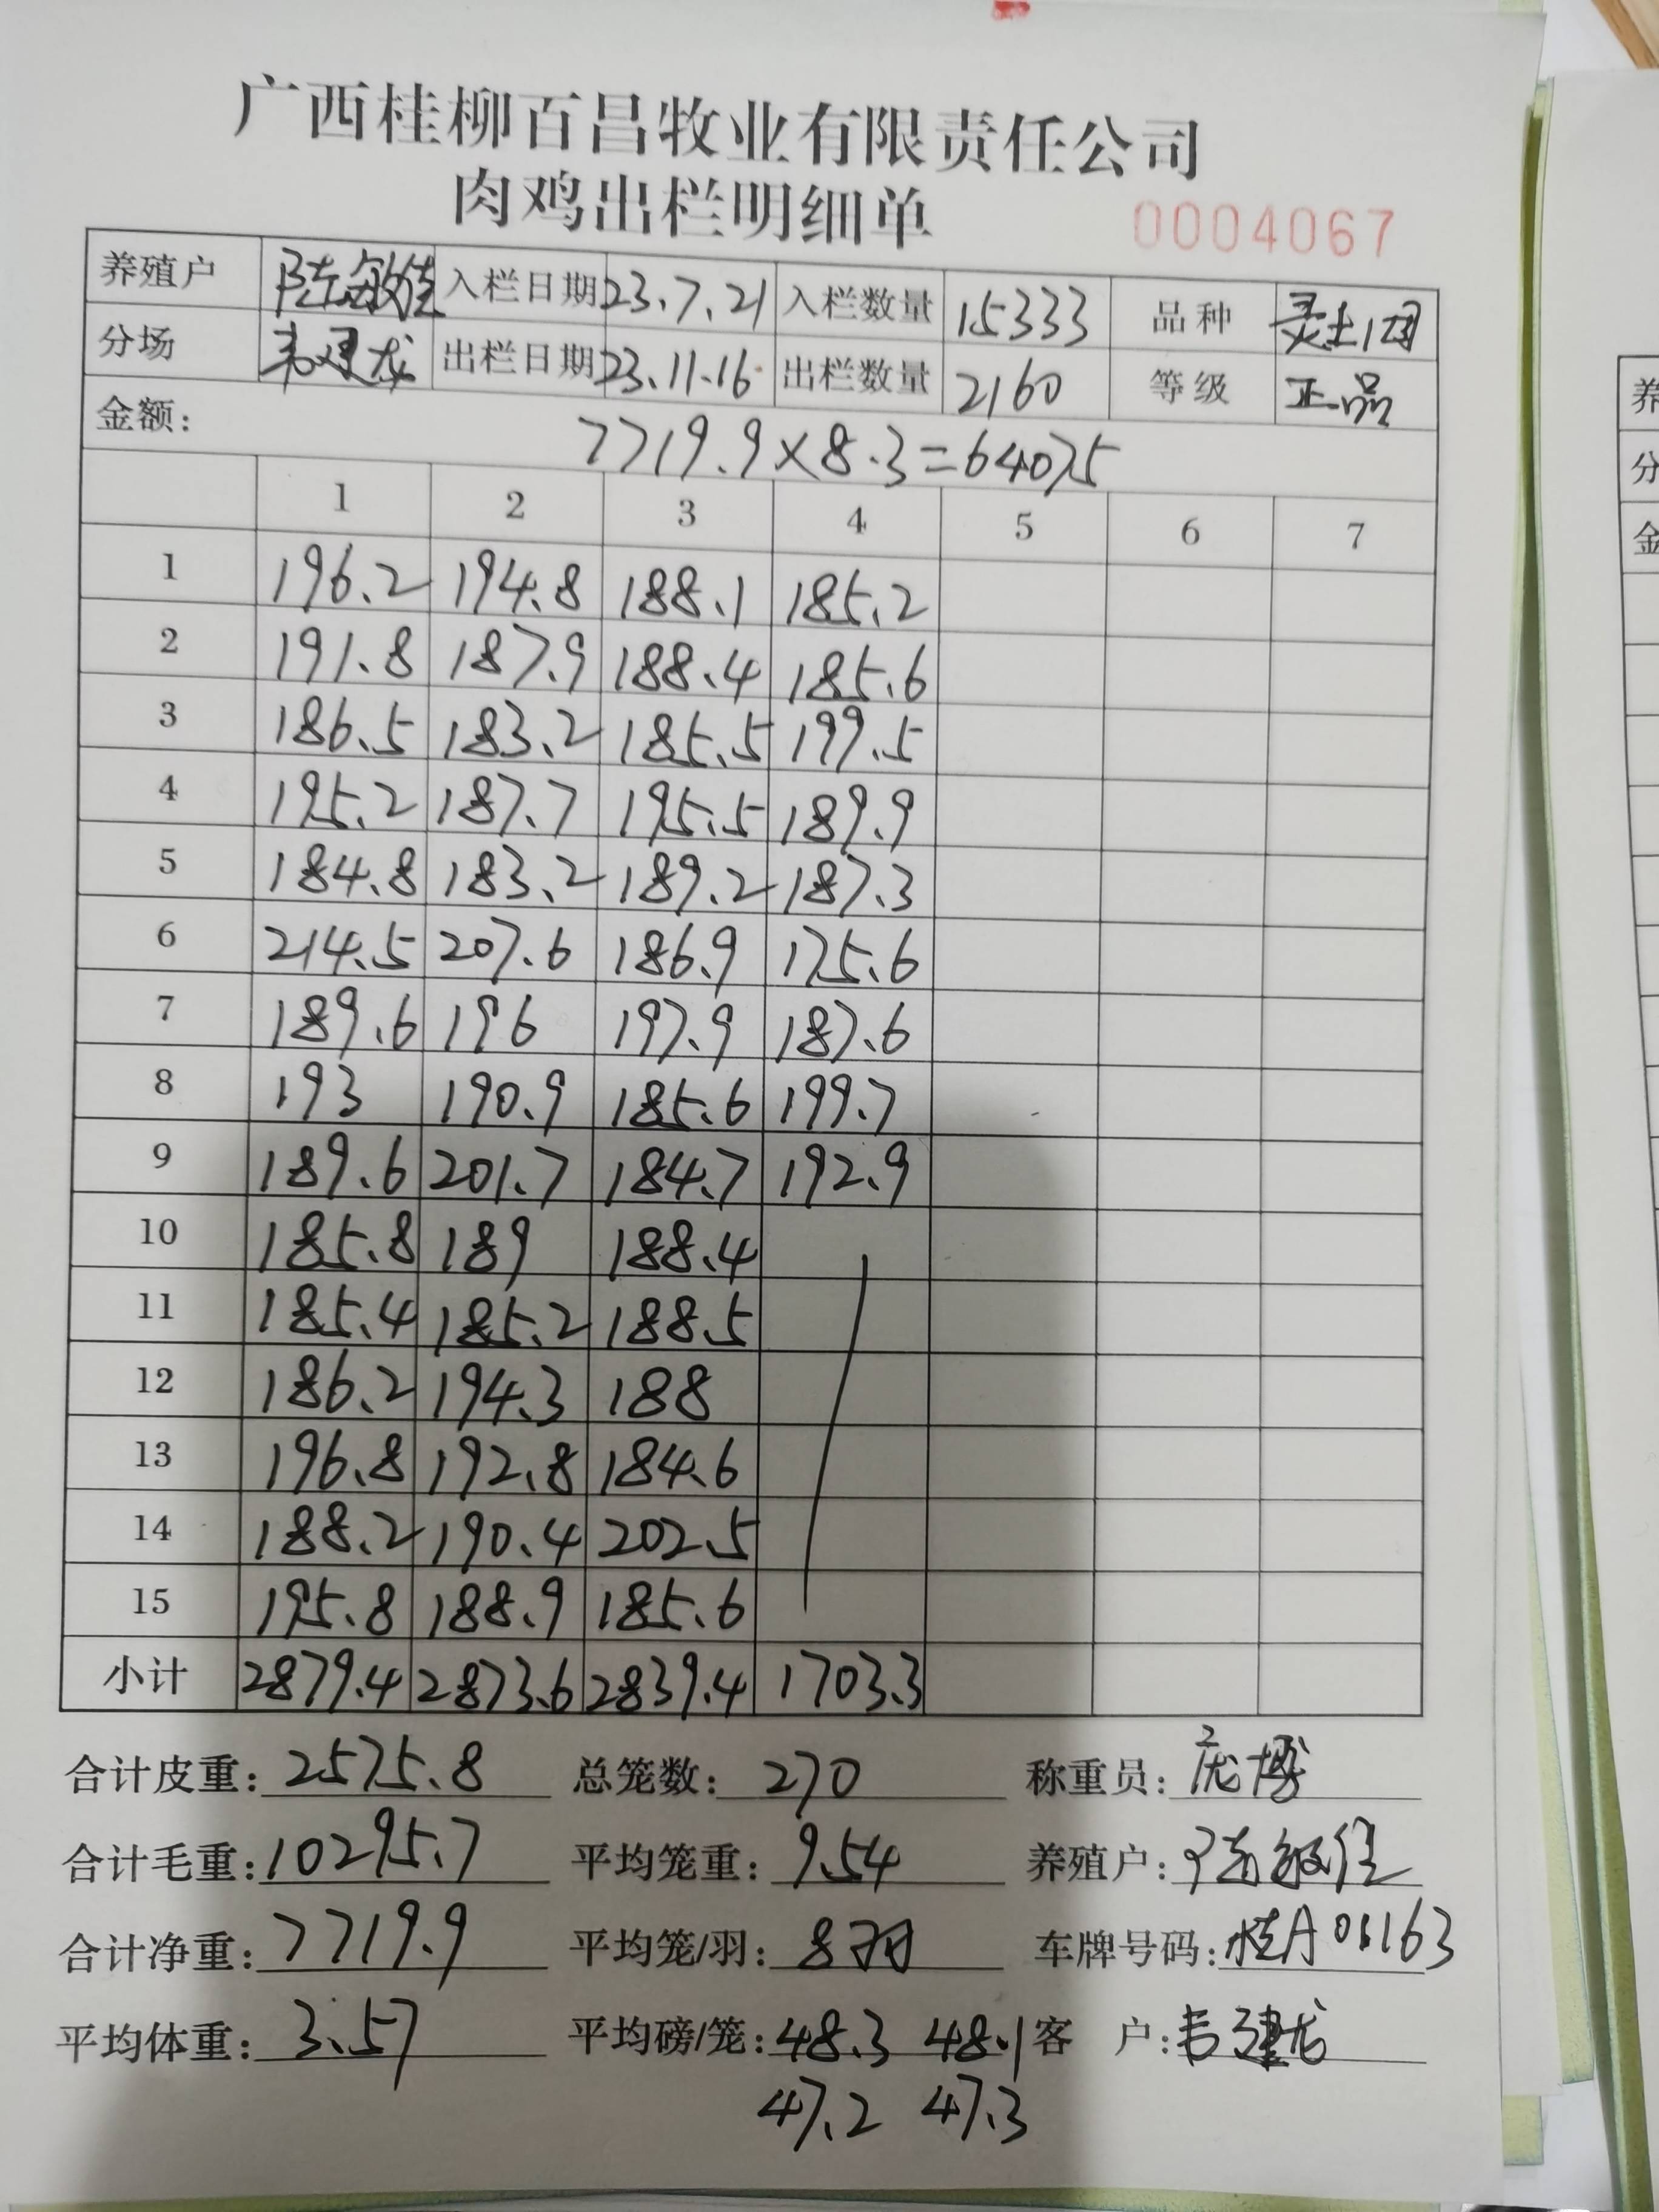 广西桂柳百昌牧业有限责任公司
肉鸡出栏明细单 0004067
养殖户 陆敏佳 入栏日期 23.7.21 入栏数量 15333 品种 灵土1母
分场 韦建龙 出栏日期 23.11.16 出栏数量 2160 等级 正品
金额: 7719.9×8.3=64075
1 2 3 4 5 6 7
1 196.2 194.8 188.1 185.2
2 191.8 187.9 188.4 185.6
3 186.5 183.2 185.5 199.5
4 195.2 187.7 195.5 189.9
5 184.8 183.2 189.2 187.3
6 214.5 207.6 186.9 175.6
7 189.6 196 197.9 187.6
8 193 190.9 185.6 199.7
9 189.6 201.7 184.7 192.9
10 185.8 189 188.4
11 185.4 185.2 188.5
12 186.2 194.3 188
13 196.8 192.8 184.6
14 188.2 190.4 202.5
15 195.8 188.9 185.6
小计 2879.4 2873.6 2839.4 1703.3
合计皮重: 2575.8 总笼数: 270 称重员: 庞博
合计毛重: 10295.7 平均笼重: 9.54 养殖户: 陆敏佳
合计净重: 7719.9 平均笼/羽: 8羽 车牌号码: 桂A01163
平均体重: 3.57 平均磅/笼: 48.3 48.1 客 户: 韦建龙
47.2 47.3
养
分
金